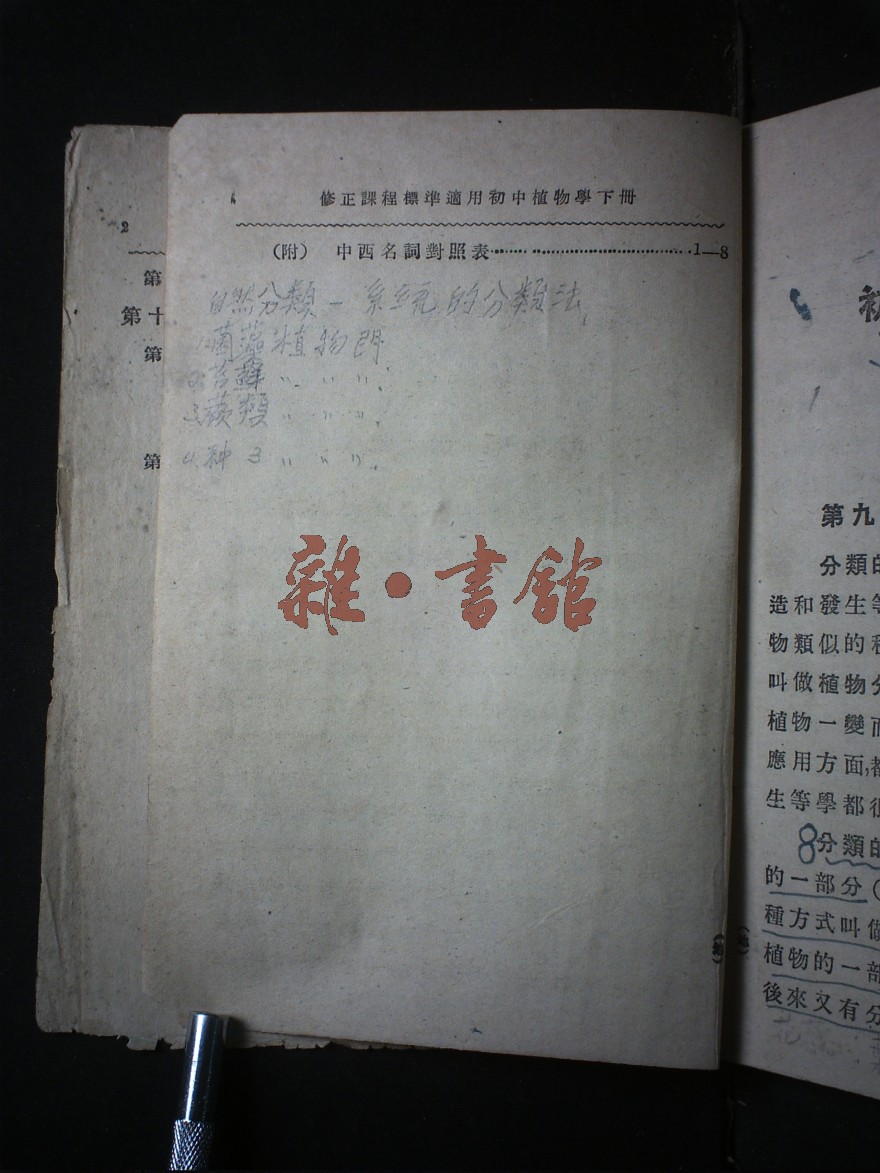 2
第
第十
第
第
修正課程標準適用初中植物學下冊
(附) 中西名詞對照表 1—8
自然分類－系統的分類法
1.菌藻植物門
2.苔蘚〃〃〃
3.蕨類〃〃〃
4.种子〃〃〃
雜·書館
初
第九
分類的
造和發生等
物類似的種
叫做植物分
植物一變而
應用方面,都
生等學都很
8分類的
的一部分(
種方式叫做
植物的一部
後來又有分